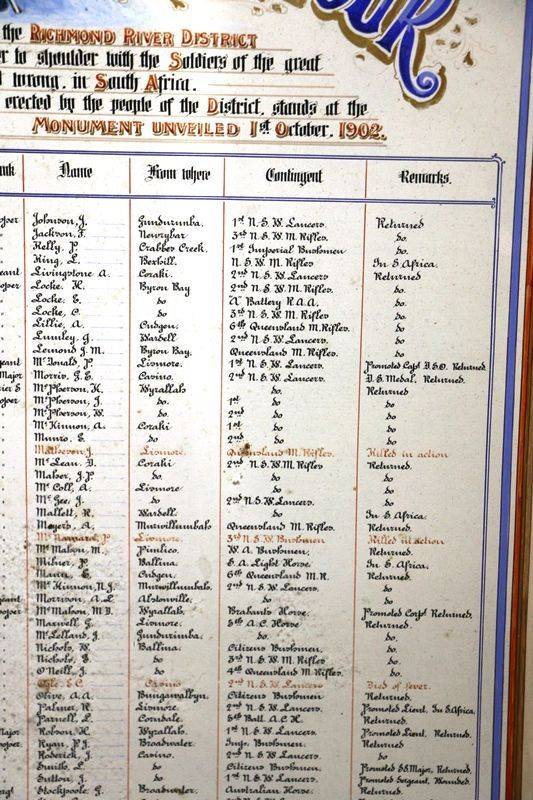 OUR
the RICHMOND RIVER DISTRICT
er to shoulder with the Soldiers of the great
wrong, in South Africa.
erected by the people of the District, stands at the
MONUMENT UNVEILED 1st October, 1902.
nk Name From where Contingent Remarks.
oper Johnson, J. Gundurumba. 1st N.S.W. Lancers. Returned
" Jackson, F. Newrybar 3rd N.S.W.M. Rifles. do.
" Kelly, P. Crabbes Creek. 1st Imperial Bushmen do.
" King, L. Bexhill. N.S.W.M. Rifles In S. Africa.
eant Livingstone A. Coraki. 2nd N.S.W. Lancers Returned
oper Locke. H. Byron Bay 2nd N.S.W.M. Rifles. do.
" Locke, E. do "A" Battery R.A.A. do
" Locke, C. do 3rd N.S.W.M. Rifles do
" Lillie, A. Cudgen. 6th Queensland M. Rifles. do.
" Lumley, G. Wardell 2nd N.S.W. Lancers. do.
" Lomond J.M. Byron Bay. Queensland M. Rifles. do.
eant McDonald, P. Lismore. 1st N.S.W. Lancers Promoted Capt D.S.O. Returned.
Major Morris, G.E. Casino. 2nd N.S.W. Lancers. D.S. Medal, Returned.
McPherson, H. Wyrallah do. Returned
oper McPherson, J. do. 1st do do
" McPherson, W. do. 2nd do do
" McKinnon, A. Coraki 1st do do
" Munro, E. do 2nd do do
" Matheson J. Lismore. Queensland M. Rifles. Killed in action
" McLean, D. Coraki 2nd N.S.W.M. Rifles Returned.
" Maher, J.P. do. do do
" McColl, A. Lismore do do
" McGee, J. do 2nd N.S.W. Lancers. do
" Mallett, R. Wardell. do. In S. Africa.
" Meyers, A. Murwillumbah Queensland M. Rifles. Returned.
" McNamara, P. Lismore. 3rd N.S.W. Bushmen Killed in action
" McMahon, M. Pimlico. W.A. Bushmen. Returned.
" Milner, P. Ballina. S.A. Light Horse. In S. Africa.
" Mann, E. Cudgen. 6th Queensland M.R. Returned.
" McKinnon, N.J. Murwillumbah. 2nd N.S.W. Lancers. do.
eant Morrison, A.L. Alstonville. do do
oper McMahon, M.D. Wyrallah. Brabants Horse. Promoted Corpl Returned.
" Maxwell, G. Lismore. 5th A.C. Horse Returned.
" McLelland, J. Gundurimba. do. do.
" Nichols, W. Ballina. Citizens Bushmen. do
" Nichols, E. do 3rd N.S.W.M. Rifles do
" O'Neill, J. do 4th Queensland M. Rifles do.
E.C. Casino 2nd N.S.W. Lancers Died of fever.
" Olive, A.A. Bungawalbyn. Citizens Bushmen Returned.
" Palmer, R. Lismore. 2nd N.S.W. Lancers. Promoted Lieut. In S. Africa.
" Parnell, L. Corndale. 5th Batt. A.C.H. Returned.
Major Robson, H. Wyrallah. 1st N.S.W. Lancers. Promoted Lieut, Returned.
oper Ryan, P.J. Broadwater Imp. Bushmen. Returned
" Roderick, J. Casino. 2nd N.S.W. Lancers. do
" Smith, L. do Citizens Bushmen Promoted S.S. Major, Returned.
" Sutton, J. do 1st N.S.W. Lancers. Promoted Sergeant, Wounded.
Stockpoole. G. Broadwater. Australian Horse. Returned.